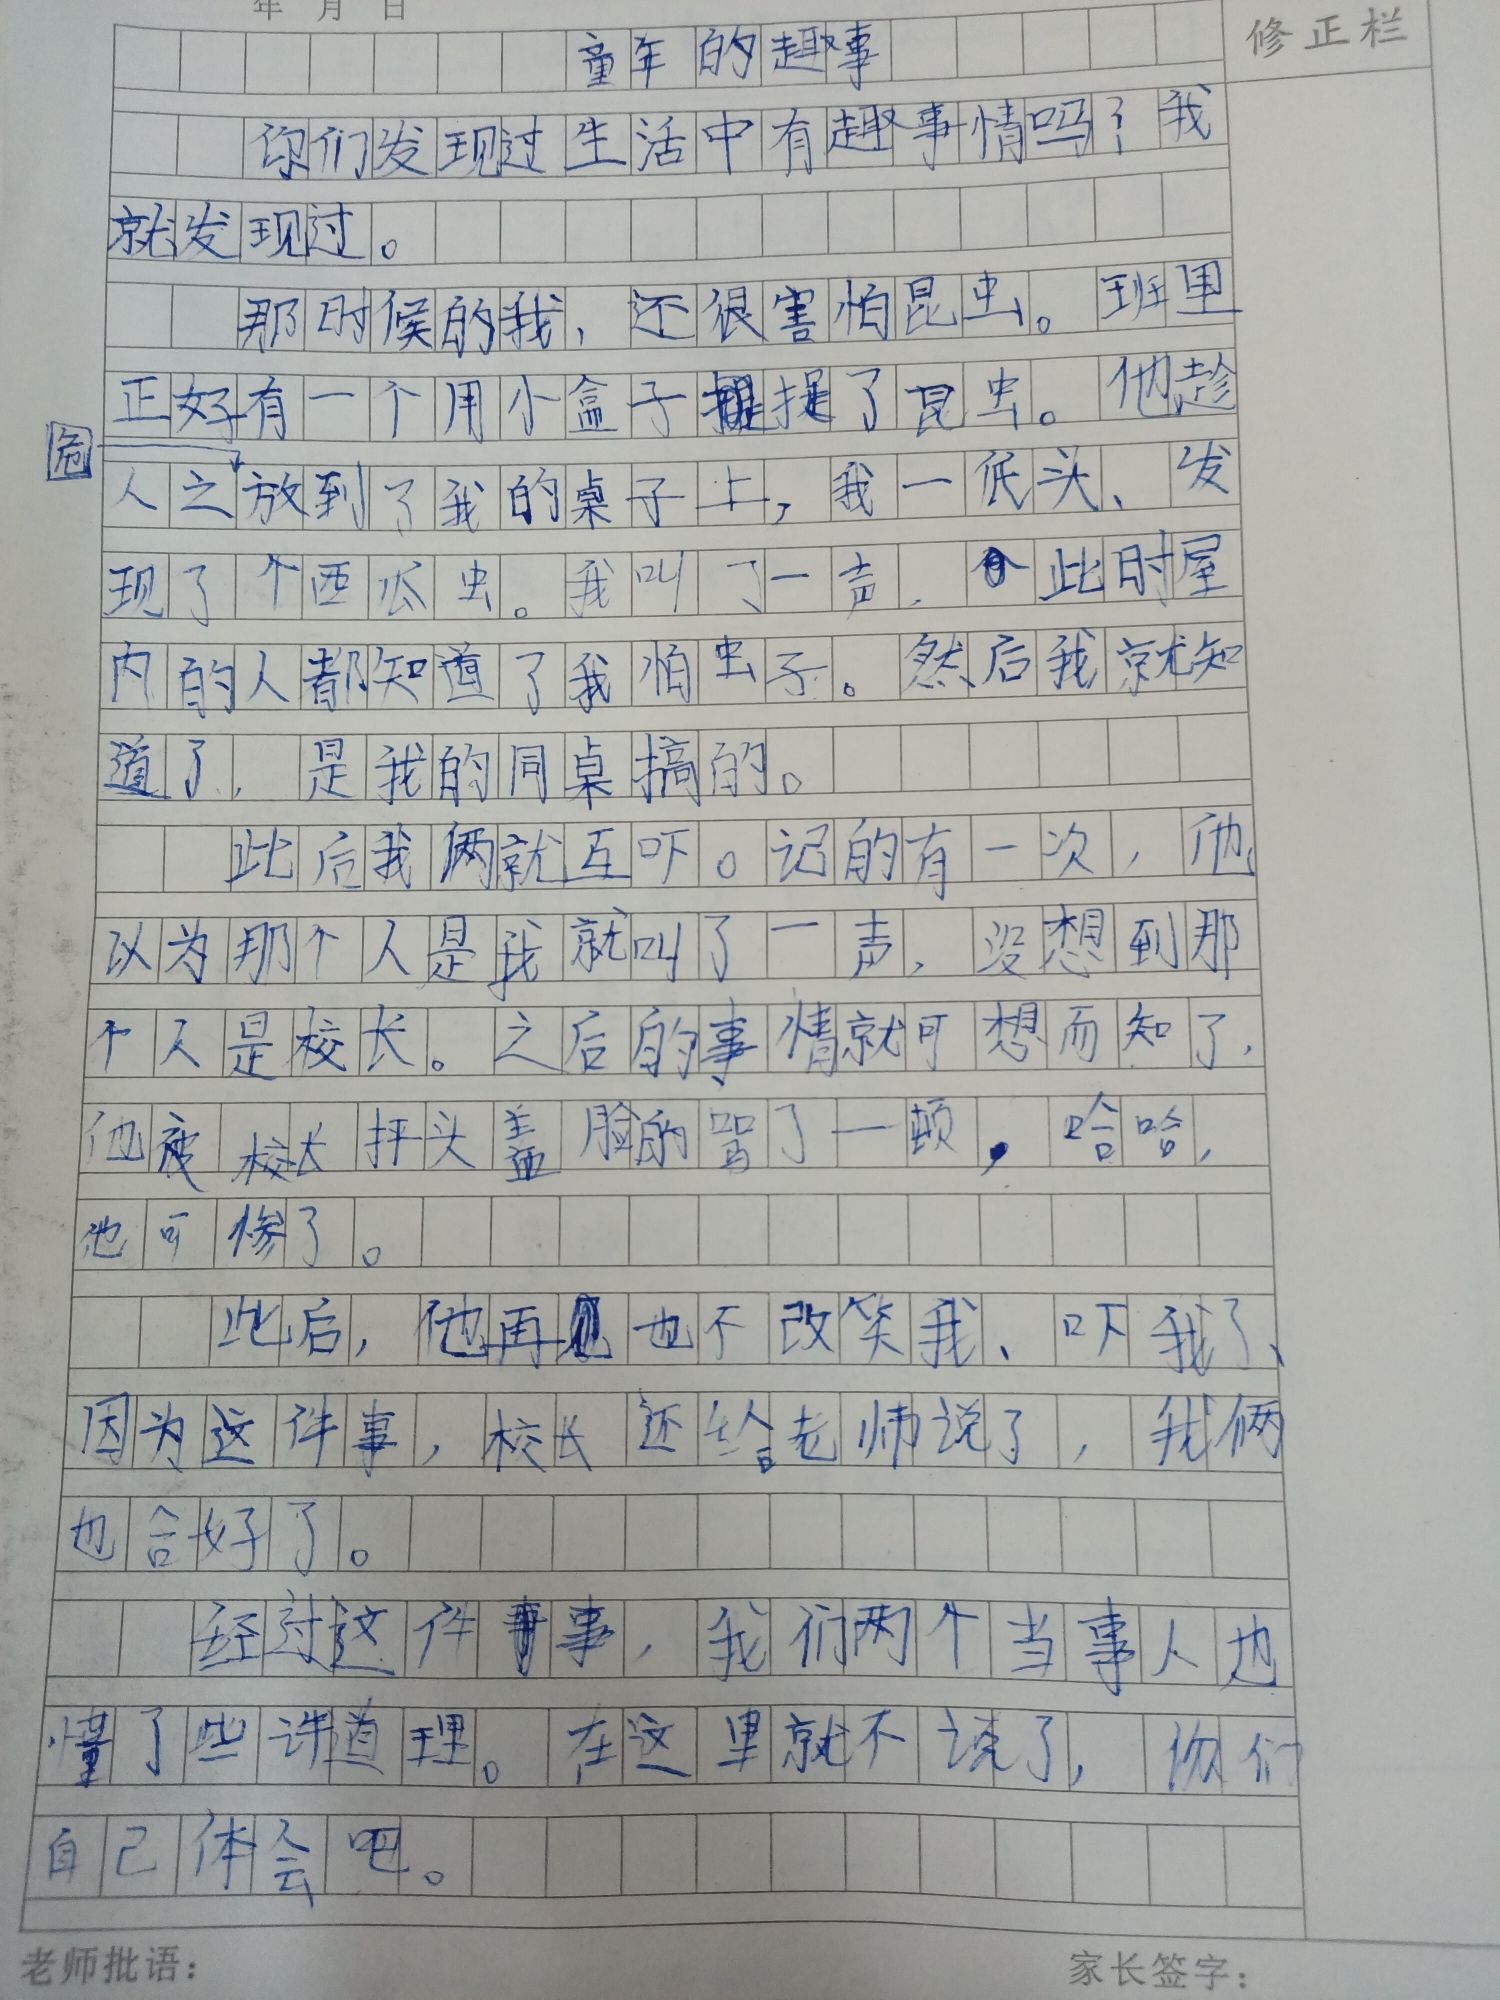 年 月 日
修正栏
童年的趣事
你们发现过生活中有趣事情吗?我
就发现过。
那时候的我,还很害怕昆虫。班里
正好有一个用小盒子捉了昆虫。他趁
人之危放到了我的桌子上,我一低头、发
现了个西瓜虫。我叫了一声,此时屋
内的人都知道了我怕虫子。然后我就知
道了,是我的同桌搞的。
此后我俩就互吓。记的有一次,他
以为那个人是我就叫了一声,没想到那
个人是校长。之后的事情就可想而知了,
他被校长抨头盖脸的骂了一顿,哈哈,
他可惨了。
此后,他再也不改笑我、吓我了、
因为这件事,校长还给老师说了,我俩
也合好了。
经过这件事,我们两个当事人也
懂了些许道理。在这里就不谈了,你们
自己体会吧。
老师批语:
家长签字: